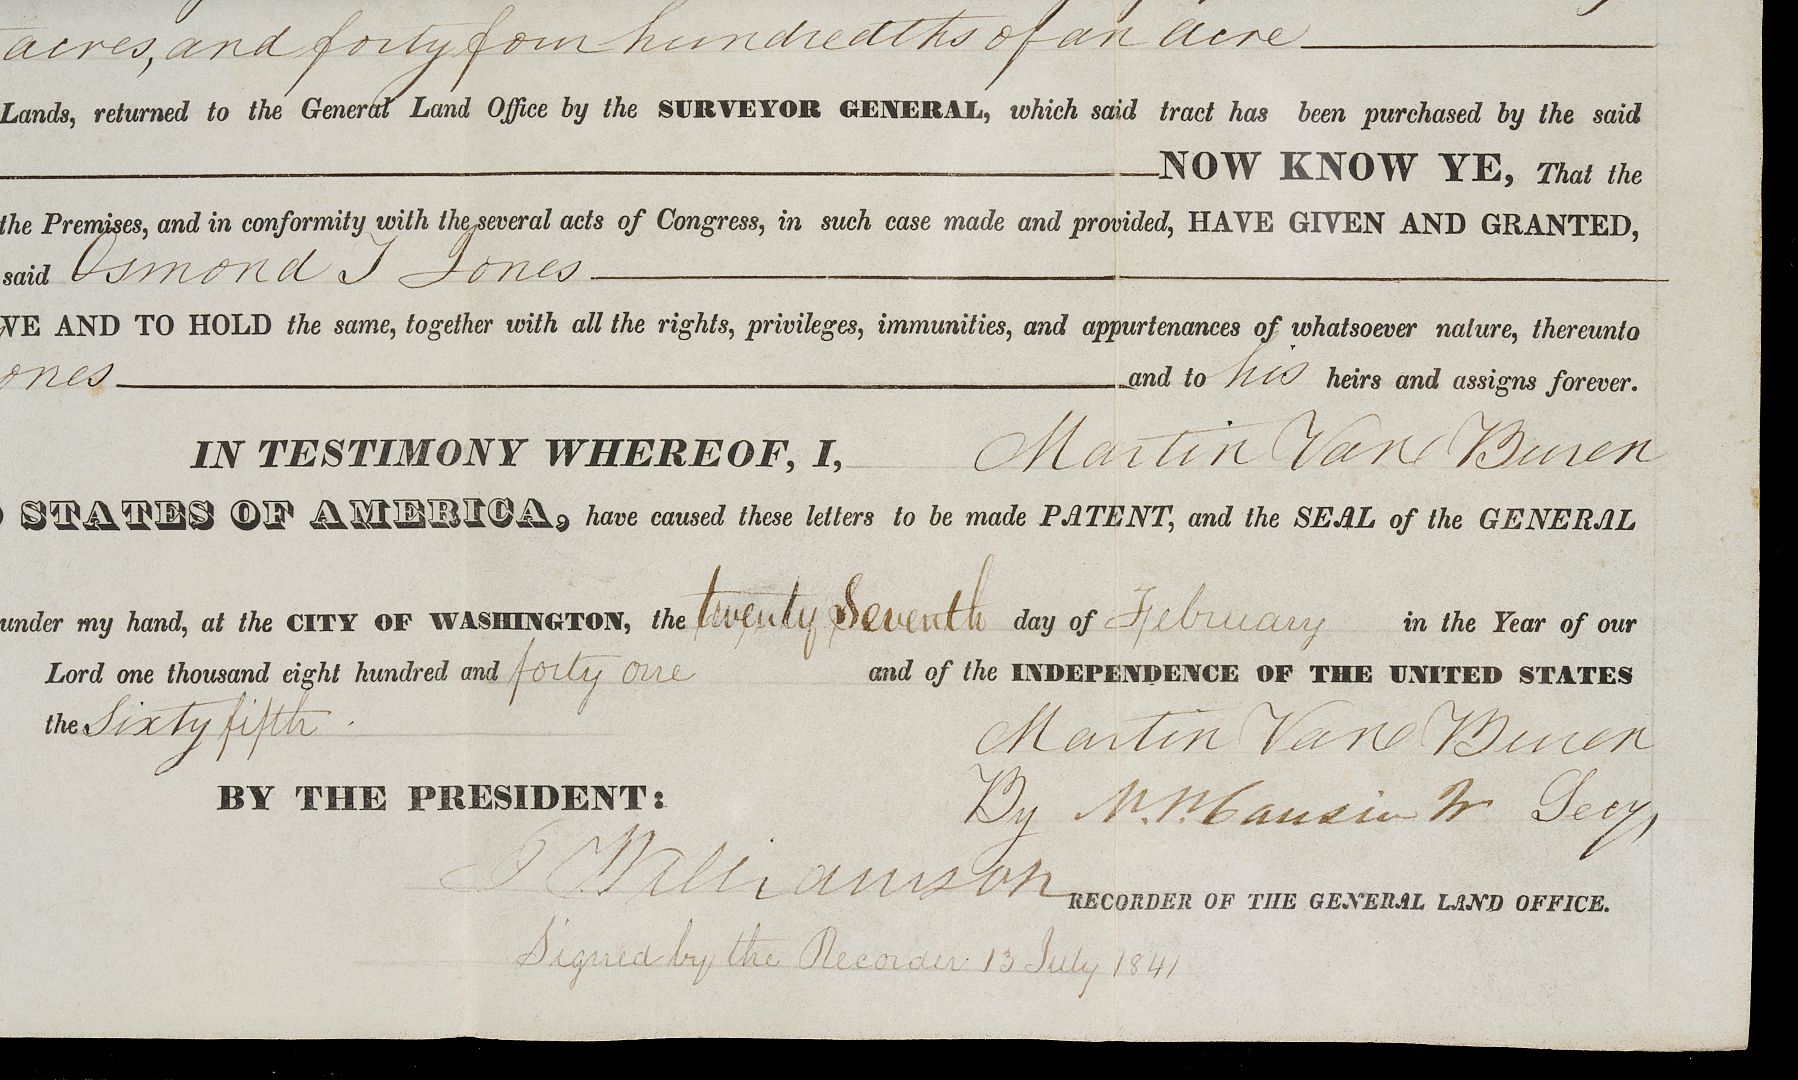 acres, and forty four hundredths of an acre
Lands, returned to the General Land Office by the SURVEYOR GENERAL, which said tract has been purchased by the said
NOW KNOW YE, That the
the Premises, and in conformity with the several acts of Congress, in such case made and provided, HAVE GIVEN AND GRANTED,
said Osmond T Jones
VE AND TO HOLD the same, together with all the rights, privileges, immunities, and appurtenances of whatsoever nature, thereunto
ones and to his heirs and assigns forever.
IN TESTIMONY WHEREOF, I, Martin Van Buren
D STATES OF AMERICA, have caused these letters to be made PATENT, and the SEAL of the GENERAL
under my hand, at the CITY OF WASHINGTON, the twenty Seventh day of February in the Year of our
Lord one thousand eight hundred and forty one and of the INDEPENDENCE OF THE UNITED STATES
the Sixty fifth.
Martin Van Buren
BY THE PRESIDENT:
By Secy,
Williamson RECORDER OF THE GENERAL LAND OFFICE.
Signed by the Recorder 13 July 1841